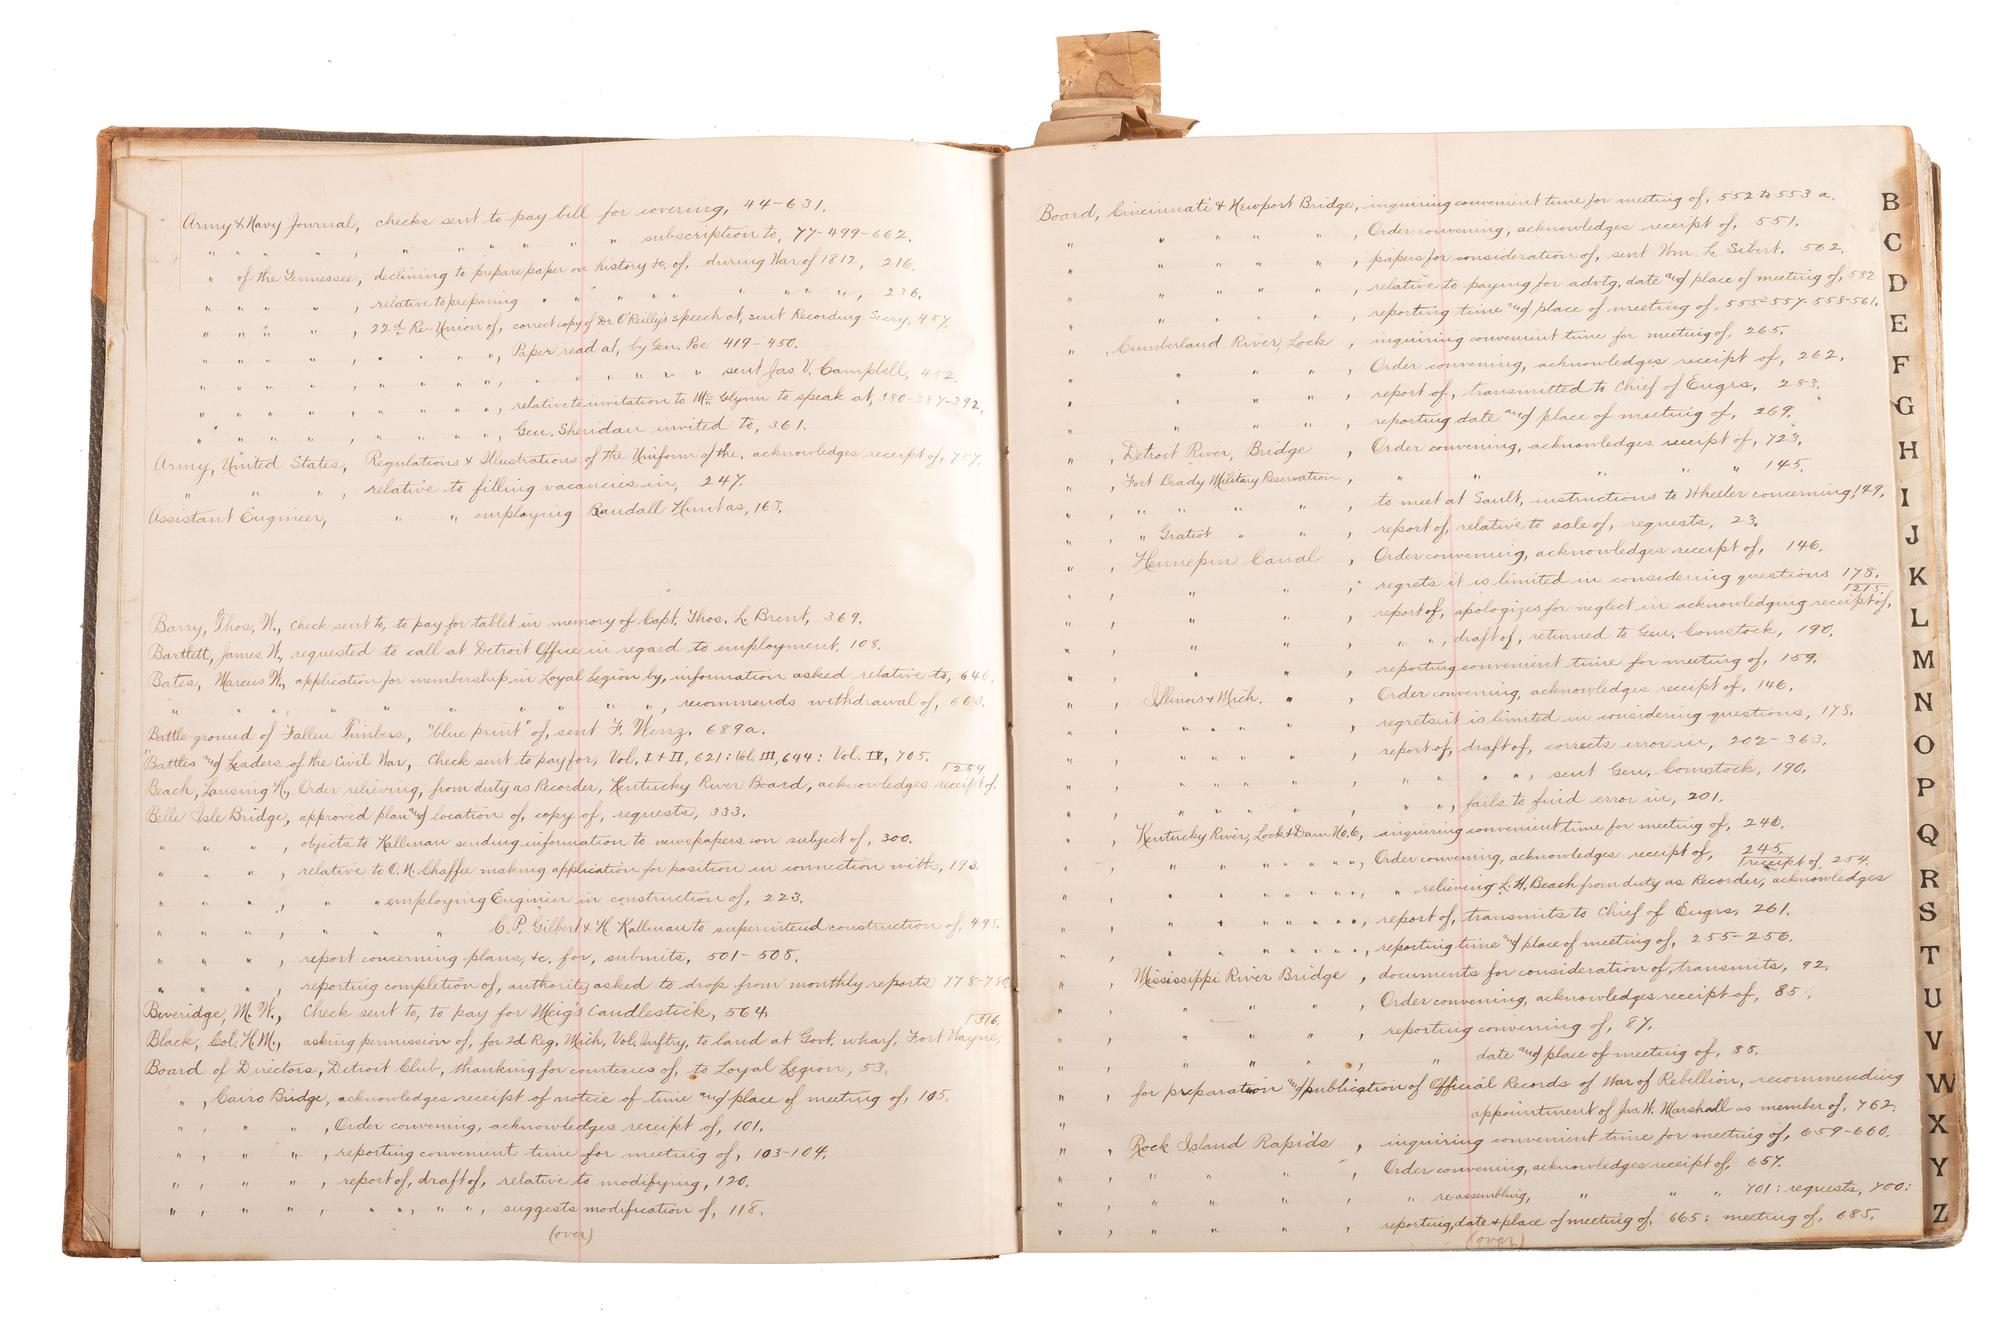 Army & Navy Journal, checks sent to pay bill for covering, 44-631.
" " " " , " " " " " " subscription to, 77-499-662.
" of the Tennessee, declining to prepare paper on history &c. of, during War of 1812, 216.
" " " " , relative to preparing " " " " " " " " " , 236.
" " " " , 22nd Re-Union of, correct copy of Dr O'Reilly's speech at, sent Recording Secry. 457.
" " " " , " " " ", Paper read at, by Gen. Poe 419-450.
" " " " , " " " ", " " " " " sent Jas. V. Campbell, 452.
" " " " , " " " ", relative to invitation to Mr. Glynn to speak at, 380-387-392,
" " " " , " " " ", Gen. Sheridan invited to, 361.
Army, United States, Regulations & Illustrations of the Uniform of the, acknowledges receipt of, 757.
" " " , relative to filling vacancies in, 247.
Assistant Engineer, " " employing Randall Hunt as, 163.
Barry, Thos. W., check sent to, to pay for tablet in memory of Capt. Thos. L. Brent, 369.
Bartlett, James W., requested to call at Detroit Office in regard to employment, 108.
Bates, Marcus W., application for membership in Loyal Legion by, information asked relative to, 646.
" " " " " " " " , recommends withdrawal of, 663.
Battle ground of Fallen Timbers, "blue print" of, sent F. Wenz. 689a.
"Battles and Leaders of the Civil War, Check sent to pay for, Vol. I + II, 621: Vol. III, 644: Vol. IV, 705.
254
Beach, Lansing H., Order relieving, from duty as Recorder, Kentucky River Board, acknowledges receipt of,
Belle Isle Bridge, approved plan and location of, copy of, requests, 333.
" " " , objects to Kallman sending information to newspapers on subject of, 300.
" " " , relative to O. N. Chaffee making application for position in connection with, 193.
" " " , " " employing Engineer in construction of, 223.
" " " , " " C. P. Gilbert & H. Kallman to superintend construction of, 495.
" " " , report concerning plans, &c. for, submits, 501-508.
" " " , reporting completion of, authority asked to drop from monthly reports 778-780,
Beveridge, M. W., Check sent to, to pay for Meig's Candlestick, 564.
1316,
Black, Col. H. M., asking permission of, for 2d Reg. Mich. Vol. Inftry, to land at Govt. wharf, Fort Wayne,
Board of Directors, Detroit Club, thanking for courtesies of, to Loyal Legion, 53.
" , Cairo Bridge, acknowledges receipt of notice of time and place of meeting of, 105.
" , " " , Order convening, acknowledges receipt of, 101.
" , " " , reporting convenient time for meeting of, 103-104.
" , " " , report of, draft of, relative to modifying, 120.
" , " " , " ", " ", suggests modification of, 118.
(over)
Board, Cincinnati & Newport Bridge, inquiring convenient time for meeting of, 552 to 553 a.
" " " " " , Order convening, acknowledges receipt of, 551.
" " " " " , papers for consideration of, sent Wm. L. Sibert. 562
" " " " " , relative to paying for advtg, date and place of meeting of, 582
" " " " " , reporting time and place of meeting of, 555-557-558-561,
" , Cumberland River, Lock , inquiring convenient time for meeting of, 265.
" " " " , Order convening, acknowledges receipt of, 262.
" " " " , report of, transmitted to Chief of Engrs, 283.
" " " " , reporting date and place of meeting of, 269.
" , Detroit River, Bridge , Order convening, acknowledges receipt of, 723.
" , Fort Brady Military Reservation , " " " " " 145.
" , " " " " , to meet at Sault, instructions to Wheeler concerning, 149.
" , " Gratiot " " , report of, relative to sale of, requests, 23.
" , Hennepin Canal , Order convening, acknowledges receipt of, 146.
" , " " , regrets it is limited in considering questions 178.
1215.
" , " " , report of, apologizes for neglect in acknowledging receipt of,
" , " " , " ", draft of, returned to Gen. Comstock, 190.
" , " " , reporting convenient time for meeting of, 159.
" , Illinois & Mich. " , Order convening, acknowledges receipt of, 146.
" , " " " " , regrets it is limited in considering questions, 178.
" , " " " " , report of, draft of, corrects error in, 202-363.
" , " " " " , " " " ", sent Gen. Comstock, 190.
" , " " " " , " ", fails to find error in, 201.
" , Kentucky River, Lock & Dam No. 6, inquiring convenient time for meeting of, 246.
" , " " " " " ", Order convening, acknowledges receipt of, 245.
receipt of, 254.
" , " " " " " ", " relieving L. H. Beach from duty as Recorder, acknowledges
" , " " " " " ", report of, transmits to Chief of Engrs, 261.
" , " " " " " ", reporting time and place of meeting of, 255-256.
" , Mississippi River Bridge , documents for consideration of, transmits, 92.
" , " " " , Order convening, acknowledges receipt of, 85.
" , " " " , reporting convening of, 87.
" , " " " , " date and place of meeting of, 88.
" , for preparation and publication of Official Records of War of Rebellion, recommending
appointment of Jas. W. Marshall as member of, 762.
" , Rock Island Rapids , inquiring convenient time for meeting of, 659-660.
" , " " " , Order convening, acknowledges receipt of, 657.
" , " " " , " re-assembling, " " " 701: requests, 700:
" , " " " , reporting, date & place of meeting of, 665: meeting of, 685.
(over)
B
C
D
E
F
G
H
I
J
K
L
M
N
O
P
Q
R
S
T
U
V
W
X
Y
Z